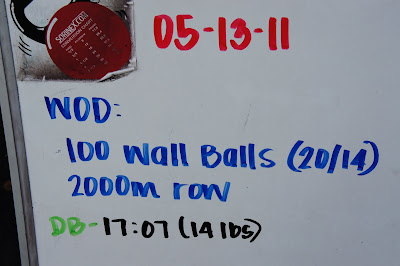 SORINEX.COM
05-13-11
WOD:
100 Wall Balls (20/14)
2000m row
DB-17:07 (14 lbs)